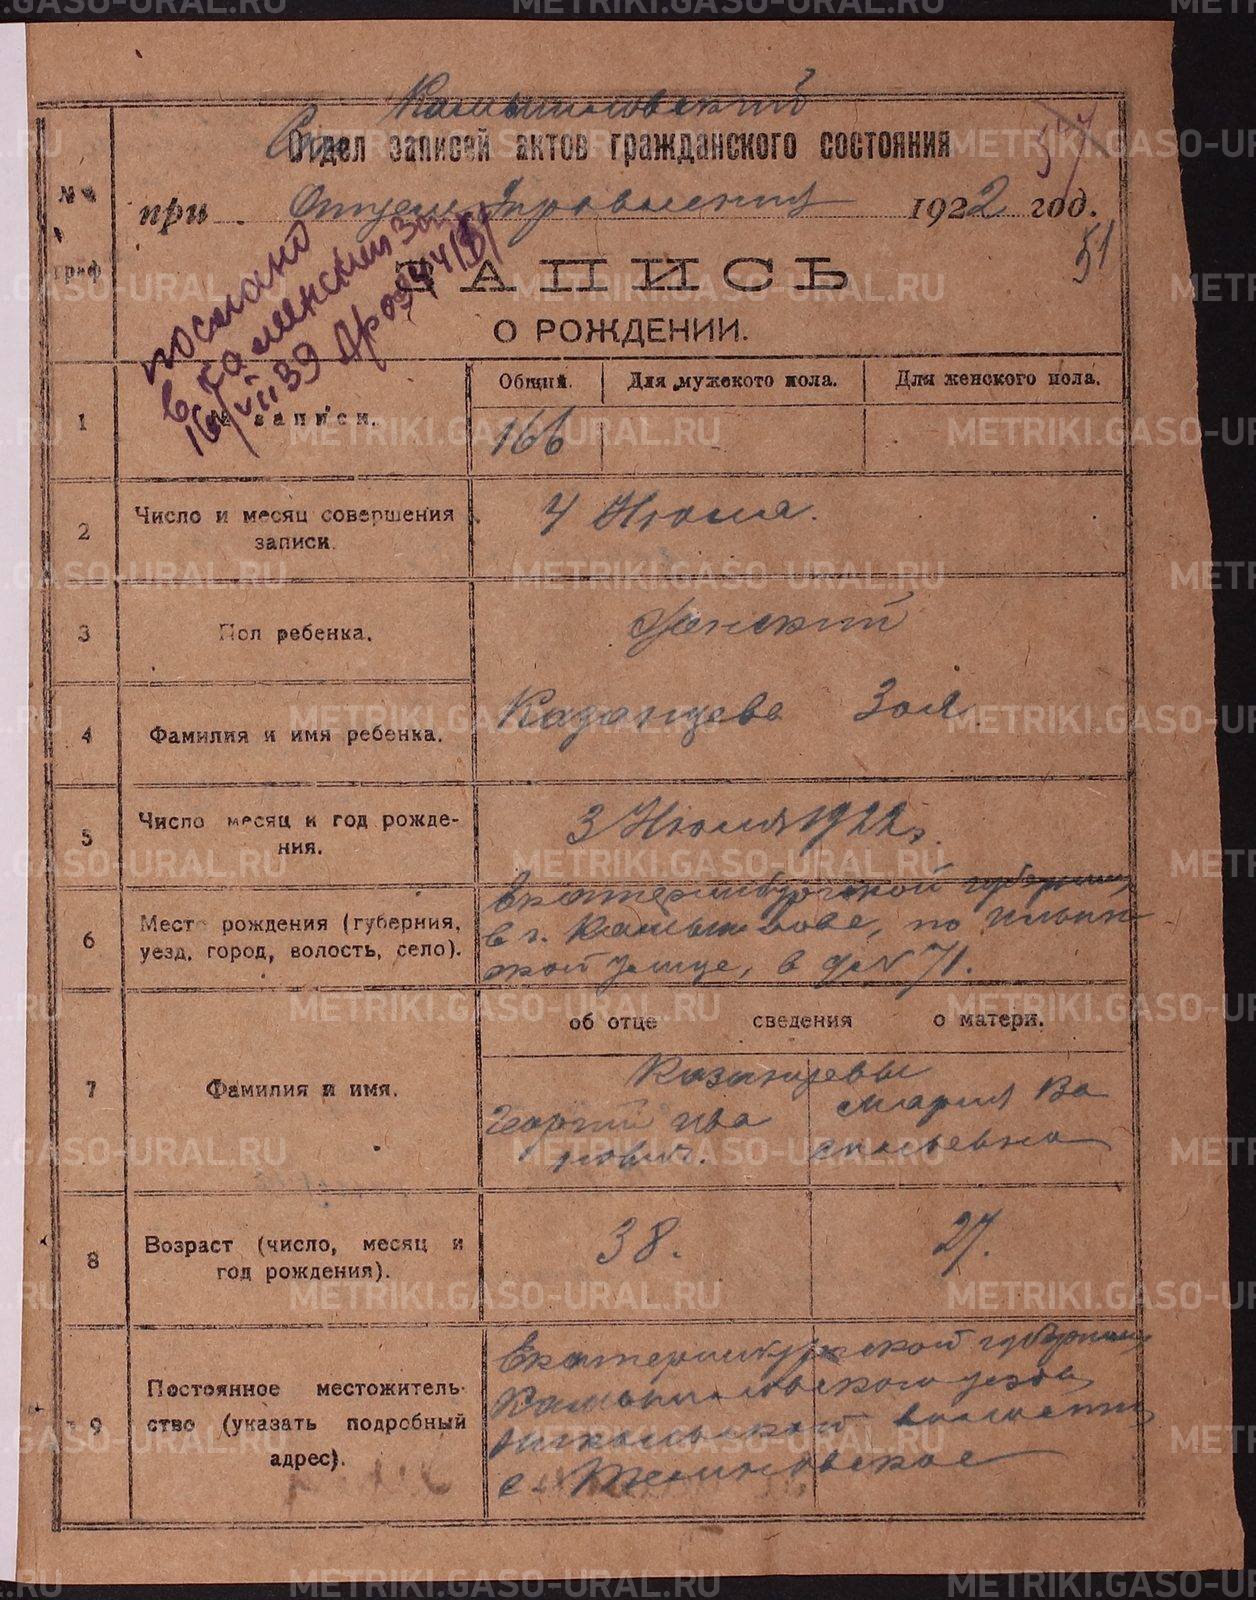 Камышловский
Отдел записей актов гражданского состояния
57
№№
граф
при Отделе Управления 1922 год.
51
ЗАПИСЬ
О РОЖДЕНИИ.
послано
в Каменский Заг
16/VII 39
Общий. Для мужского пола. Для женского пола.
1 № записи. 166
2 Число и месяц совершения
записи. 4 Июля.
3 Пол ребенка. Женский
4 Фамилия и имя ребенка. Казанцева Зоя.
5 Число месяц и год рожде-
ния. 3 Июля 1922 г.
6 Место рождения (губерния,
уезд, город, волость, село). Екатеринбургской губернии,
в г. Камышлове, по Ильин-
ской улице, в д № 71.
об отце сведения о матери.
7 Фамилия и имя. Казанцевы
Георгий Ива Мария Ва
нович. сильевна
8 Возраст (число, месяц и
год рождения). 38. 27.
9 Постоянное местожитель-
ство (указать подробный
адрес). Екатеринбургской губернии,
Камышловского уезда,
Никольской волости,
с.
METRIKI.GASO-URAL.RU